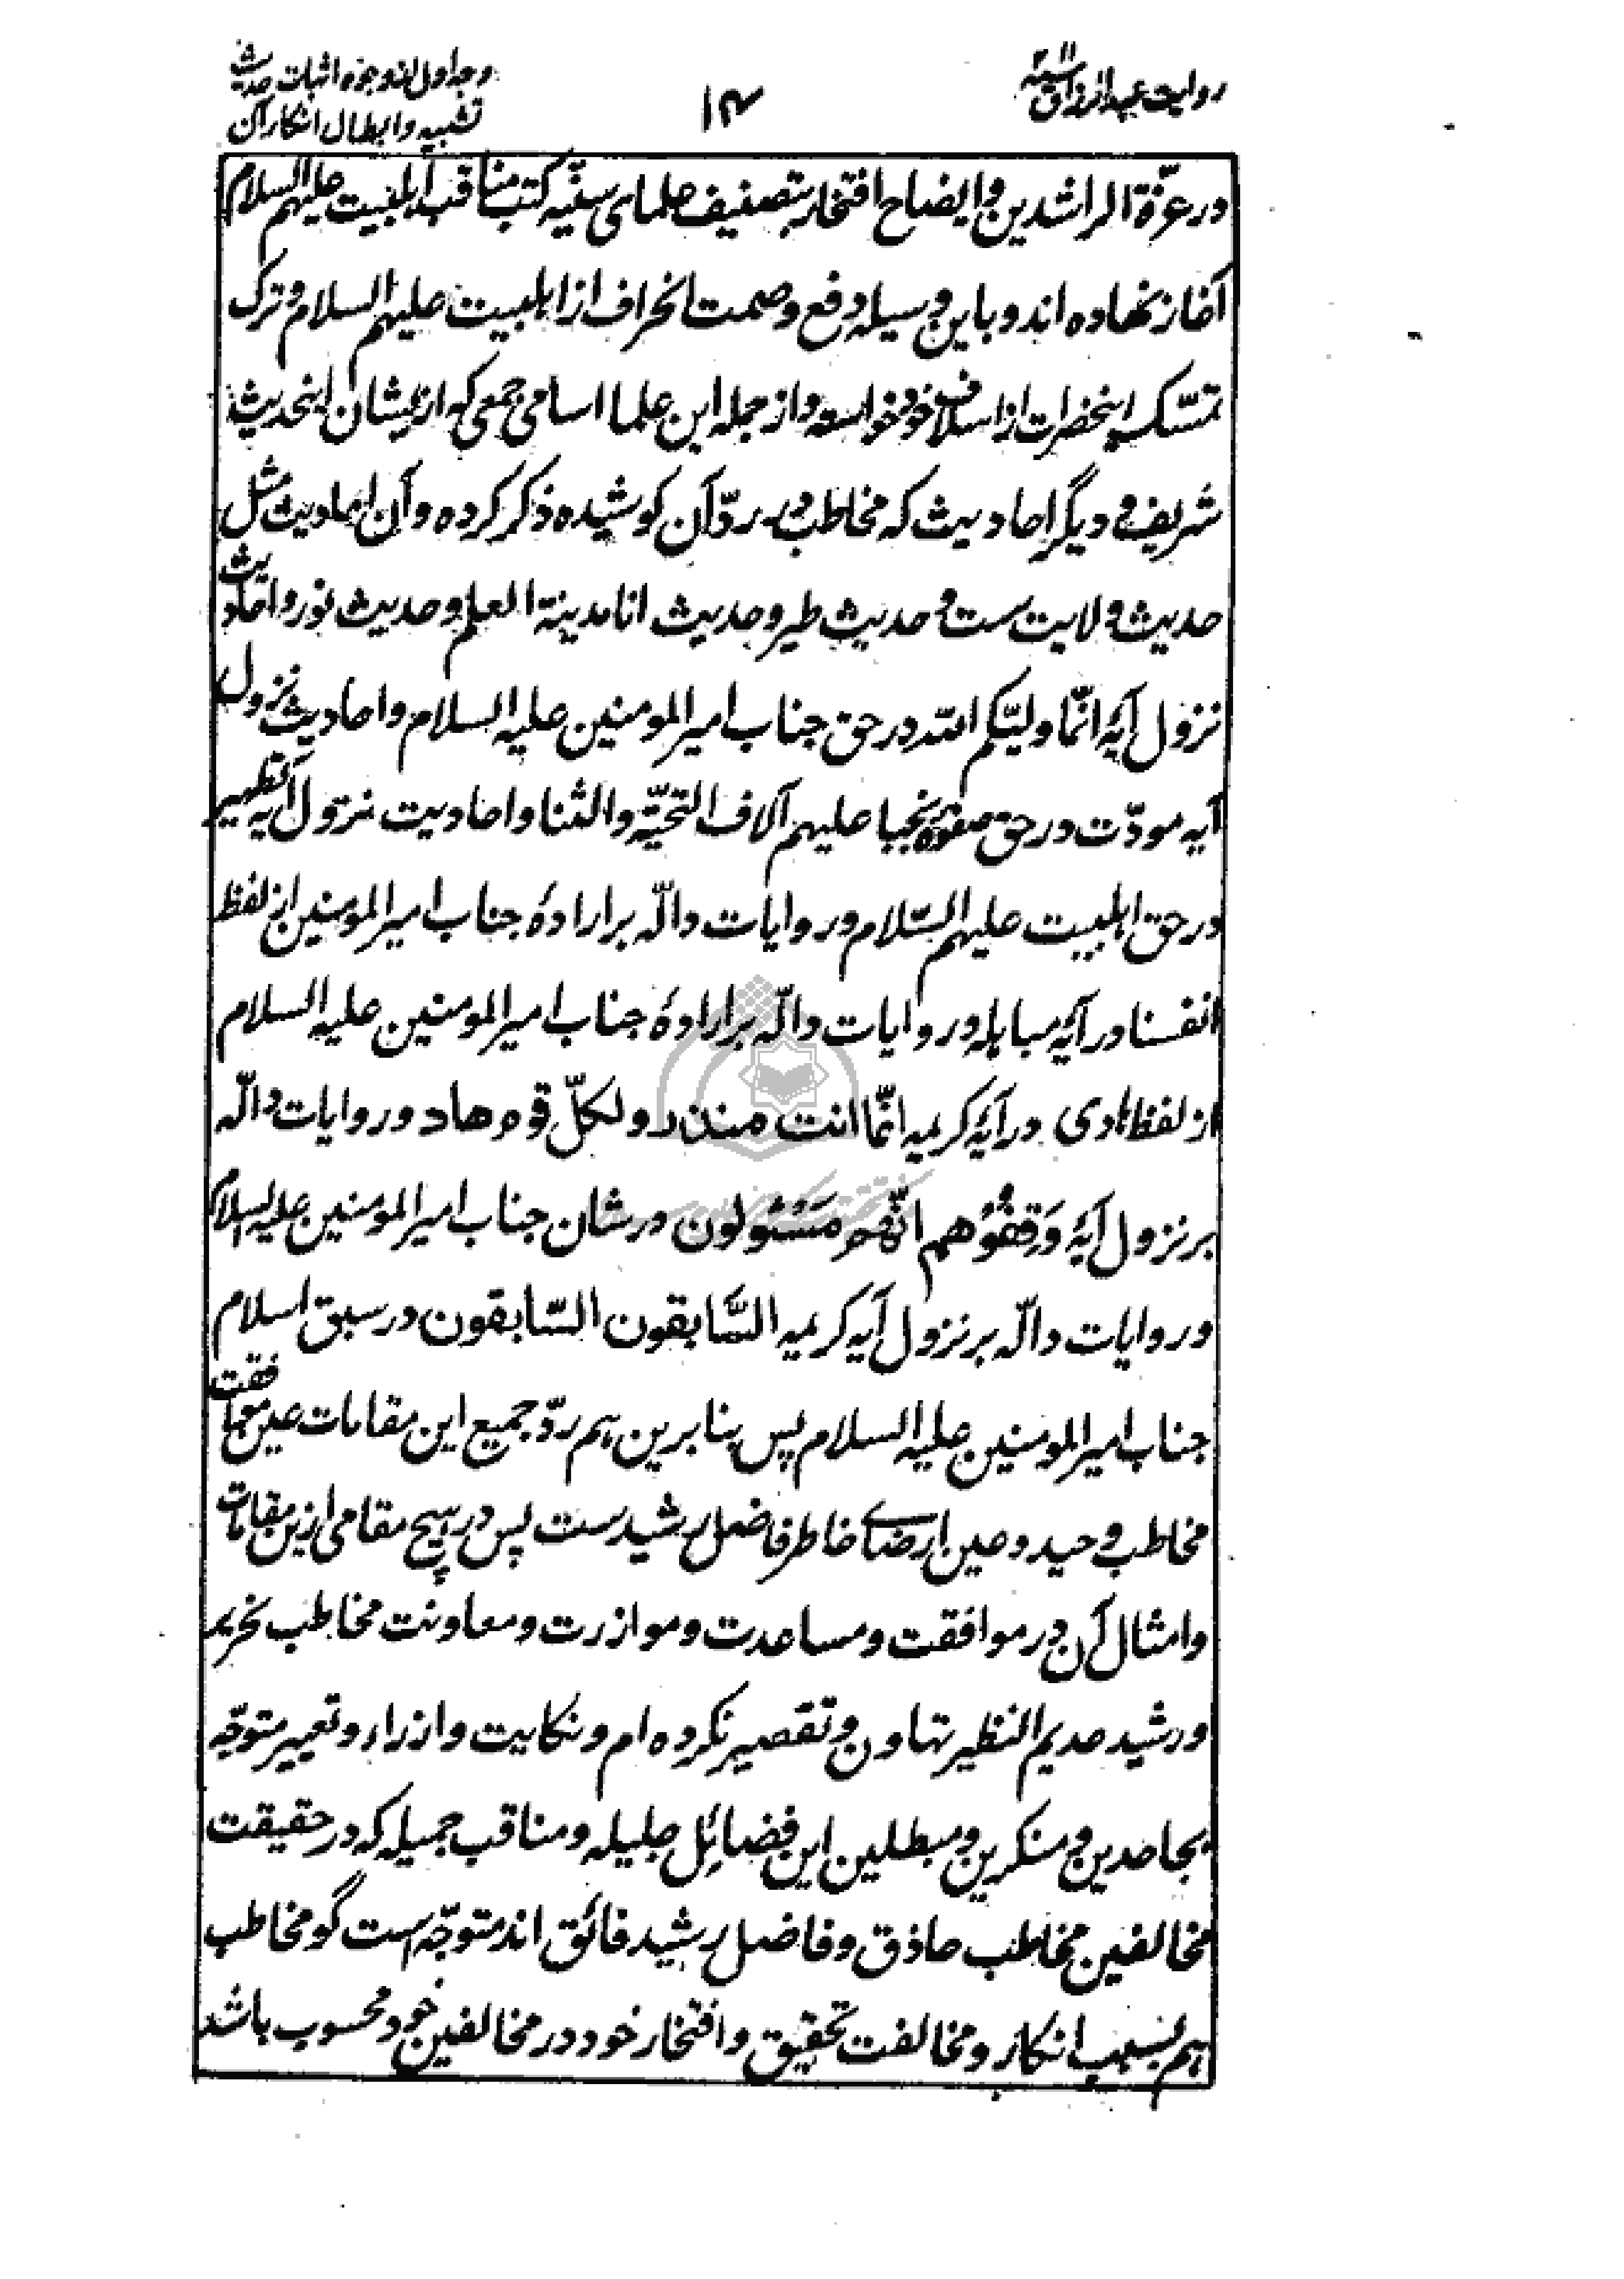 روایت عبدالرزاق
۱۴
وجه اول از وجوه اثبات حدیث
تشبیه و ابطال انکار آن
در عزّة الراشدین و ایضاح افتخار بتصنیف علمای سنّیه کتب مناقب اهلبیت علیهم السلام
آغاز نهاده اند و باین وسیله دفع وصمت انحراف از اهلبیت علیهم السلام و ترک
تمسّک باینحضرات از اسلاف خود خواسته و از جمله این علما اسامی جمعی که ازیشان اینحدیث
شریف و دیگر احادیث که مخاطب در ردّ آن کوشیده ذکر کرده و آن احادیث مثل
حدیث ولایت ست و حدیث طیر و حدیث انا مدینة العلم و حدیث نور و احادیث
نزول آیهٔ انّما ولیّکم اللّه در حق جناب امیر المومنین علیه السلام و احادیث نزول
آیه مودّت در حق صفوهٔ نجبا علیهم آلاف التحیّة و الثنا و احادیث نزول آیه تطهیر
در حق اهلبیت علیهم السّلام و روایات دالّه بر ارادهٔ جناب امیر المومنین از لفظ
انفسنا در آیهٔ مباهله و روایات دالّه بر ارادهٔ جناب امیر المومنین علیه السلام
از لفظ هادی در آیهٔ کریمه انّما انت منذر و لکلّ قوم هاد و روایات دالّه
بر نزول آیهٔ وَقِفُوْهم انّهم مَسْئولون در شان جناب امیر المومنین علیه السلام
و روایات دالّه بر نزول آیه کریمه السَّابقون السّابقون در سبق اسلام
جناب امیر المومنین علیه السلام پس بنا برین هم ردّ جمیع این مقامات عین موافقت
مخاطب وحید و عین ارضای خاطر فاضل رشیدست پس در هیچ مقامی ازین مقامات
و امثال آن در موافقت و مساعدت و موازرت و معاونت مخاطب نحریر
و رشید عدیم النظیر تهاون و تقصیر نکرده ام و نکایت و ازراء و تعییر متوجّه
بجاحدین و منکرین و مبطلین این فضائل جلیله و مناقب جمیله که در حقیقت
مخالفین مخاطب حاذق و فاضل رشید فائق اند متوجّه است گو مخاطب
هم بسبب انکار و مخالفت تحقیق و افتخار خود در مخالفین خود محسوب باشد